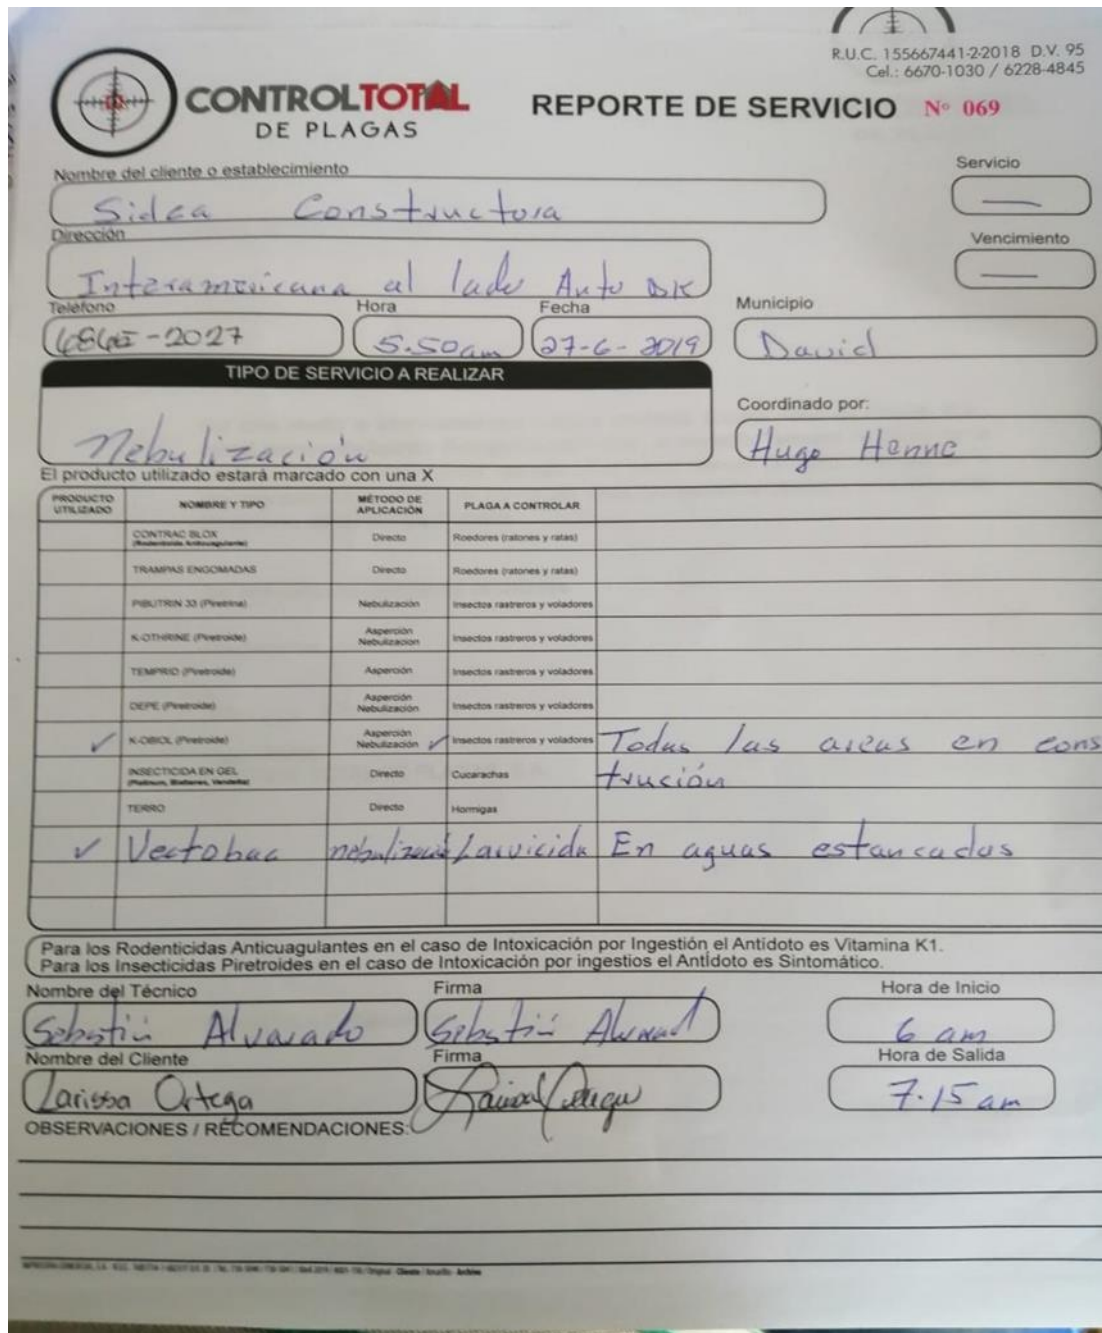 R.U.C. 155667441-2-2018 D.V. 95
Cel.: 6670-1030 / 6228-4845
CONTROLTOTAL
DE PLAGAS
REPORTE DE SERVICIO Nº 069
Nombre del cliente o establecimiento
Servicio
Sidca Constructora
—
Dirección
Vencimiento
Interamericana al lado Auto
—
Teléfono Hora Fecha Municipio
-2027 5.50am 27-6-2019 David
TIPO DE SERVICIO A REALIZAR
Coordinado por:
Nebulización
Hugo Henne
El producto utilizado estará marcado con una X
PRODUCTO UTILIZADO NOMBRE Y TIPO MÉTODO DE APLICACIÓN PLAGA A CONTROLAR
CONTRAC BLOX (Rodenticida Anticuagulante) Directo Roedores (ratones y ratas)
TRAMPAS ENGOMADAS Directo Roedores (ratones y ratas)
PIBUTRIN 33 (Piretrina) Nebulización Insectos rastreros y voladores
K-OTHRINE (Piretroide) Asperción Nebulizacion Insectos rastreros y voladores
TEMPRID (Piretroide) Asperción Insectos rastreros y voladores
DEPE (Piretroide) Asperción Nebulización Insectos rastreros y voladores
✓ K-OBIOL (Piretroide) Asperción Nebulización ✓ Insectos rastreros y voladores Todas las areas en cons
INSECTICIDA EN GEL Directo Cucarachas trución
TERRO Directo Hormigas
✓ Vectobac Larvicida En aguas estancadas
Para los Rodenticidas Anticuagulantes en el caso de Intoxicación por Ingestión el Antidoto es Vitamina K1.
Para los Insecticidas Piretroides en el caso de Intoxicación por ingestios el Antídoto es Sintomático.
Nombre del Técnico Firma Hora de Inicio
Alvarado 6 am
Nombre del Cliente Firma Hora de Salida
Larissa Ortega 7.15 am
OBSERVACIONES / RECOMENDACIONES: